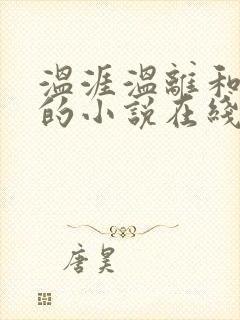 温涯温離和
的小説在綫
唐昊